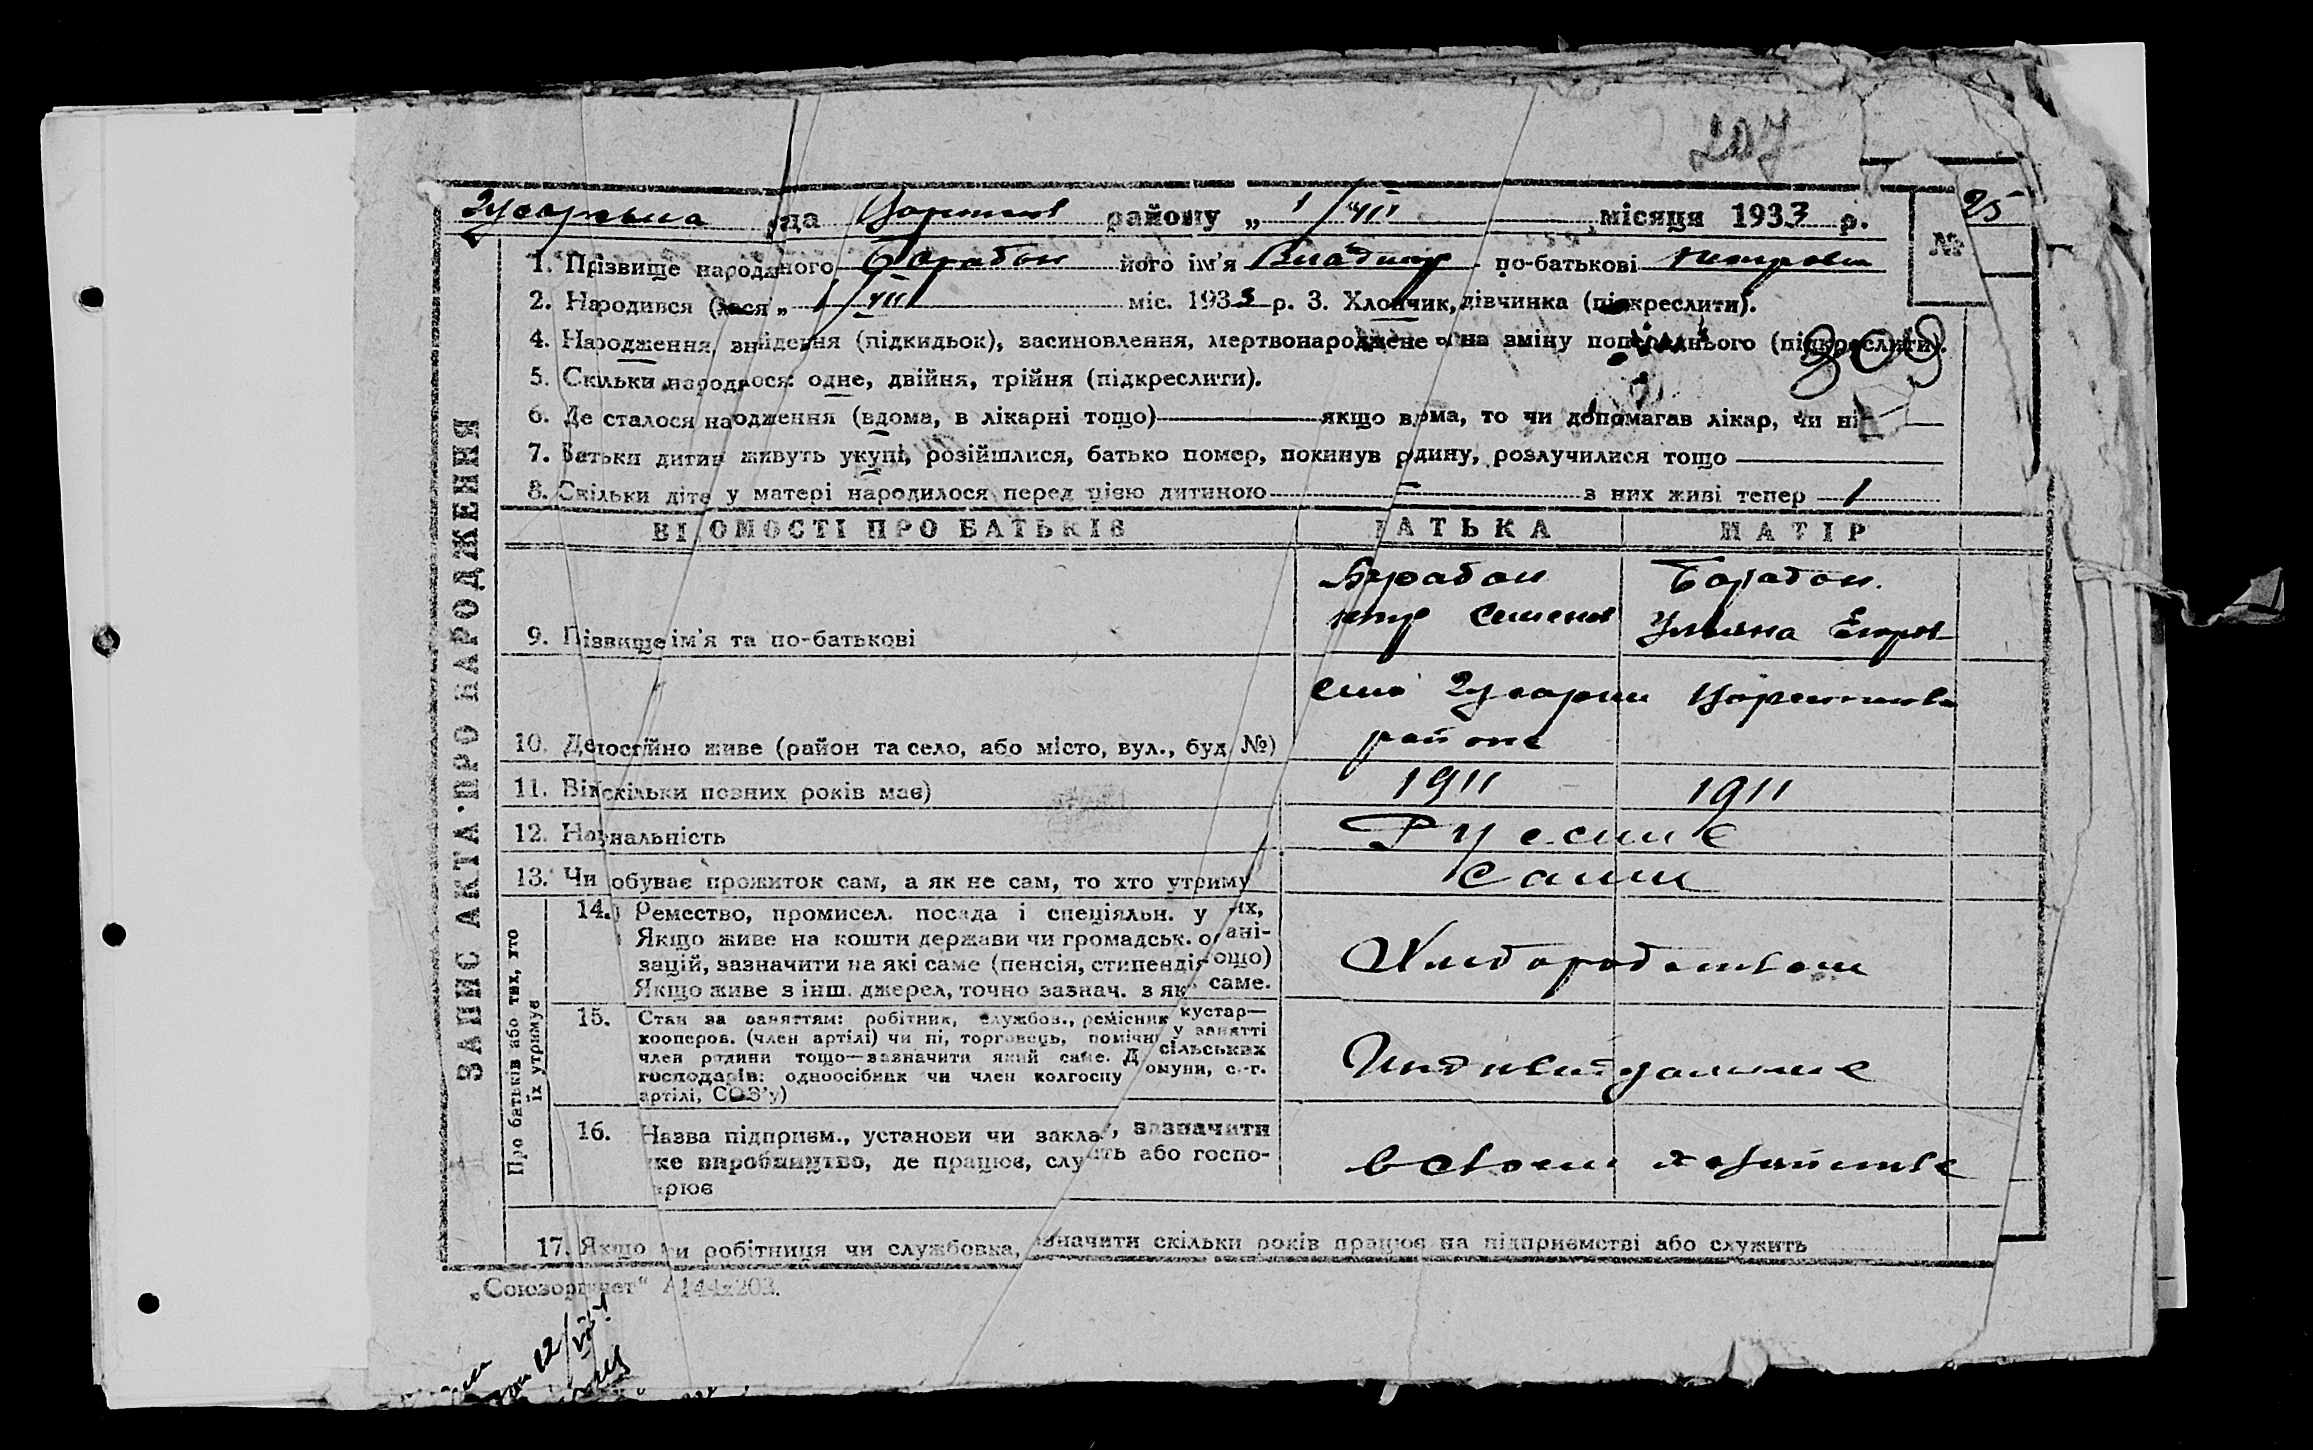 207
района „ 1/VII місяця 1933 р. № 25
1. Прізвище народженого Барабан його ім'я Владимир по-батькові Петрович
2. Народився (лася „ 1/VII міс. 1933 р. 3. Хлопчик, дівчинка (підкреслити).
4. Народження, знайдення (підкидьок), засиновлення, мертвонароджене на зміну попереднього (підкреслити).
5. Скільки народилося: одне, двійня, трійня (підкреслити).
6. Де сталося народження (вдома, в лікарні тощо) якщо вдома, то чи допомагав лікар, чи ні
7. Батьки дитини живуть укупі, розійшлися, батько помер, покинув родину, розлучилися тощо
8. Скільки діте у матері народилося перед цією дитиною — з них живі тепер 1
ЗАПИС АКТА ПРО НАРОДЖЕННЯ
ВІДОМОСТІ ПРО БАТЬКІВ БАТЬКА МАТІР
Барабан Барабан
Петр Семенов Ульяна Егоров
9. Прізвище ім'я та по-батькові
село
10. Де постійно живе (район та село, або місто, вул., буд. №) районе
11. Вік скільки повних років має) 1911 1911
12. Національність Русские
13. Чи добуває прожиток сам, а як не сам, то хто утримує Сами
Про батьків або тих, хто їх утримує
14. Ремество, промисел. посада і спеціяльн. у них,
Якщо живе на кошти держави чи громадськ. органі-
зацій, зазначити на які саме (пенсія, стипендія тощо)
Якщо живе з інш. джерел, точно зазнач. з яких саме. Хлебороботвом
15. Стан за заняттям: робітник, службов., ремісник кустар—
кооперов. (член артілі) чи ні, торговець, помічн у занятті
член родини тощо—зазначити який саме. Для сільських
господарів: одноосібник чи член колгоспу комуни, с.-г.
артілі, СОЗ'у)
16. Назва підприєм., установи чи закладу, зазначити
яке виробництво, де працює, служить або госпо-
дарює в своем хозяйстве
17. Якщо мати робітниця чи службовка, зазначити скільки років працює на підприємстві або служить
„Союзоргучет“ А144x203.